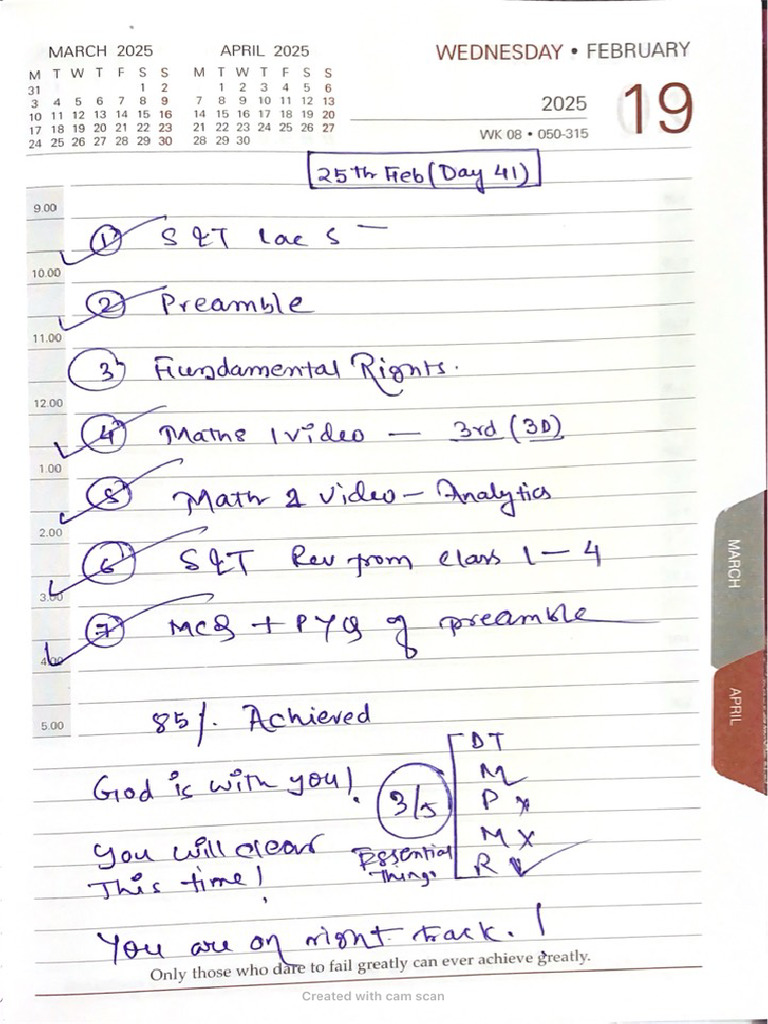 MARCH 2025
M T W T F S S
31 1 2
3 4 5 6 7 8 9
10 11 12 13 14 15 16
17 18 19 20 21 22 23
24 25 26 27 28 29 30
APRIL 2025
M T W T F S S
1 2 3 4 5 6
7 8 9 10 11 12 13
14 15 16 17 18 19 20
21 22 23 24 25 26 27
28 29 30
WEDNESDAY • FEBRUARY
2025
19
WK 08 • 050-315
25th Feb (Day 41)
9.00
1 S&T lac 5 —
10.00
2 Preamble
11.00
3 Fundamental Rights.
12.00
4 Maths 1 video — 3rd (3D)
1.00
5 Math 1 video - Analytics
2.00
6 S&T Rev from class 1 — 4
3.00
7 MCQ + PYQ of preamble
4.00
5.00
85%. Achieved
God is with you!
You will clear
This time!
3/5
Essential
Things
DT
M
P x
M x
R ✓
You are on right track. !
Only those who dare to fail greatly can ever achieve greatly.
MARCH
APRIL
Created with cam scan